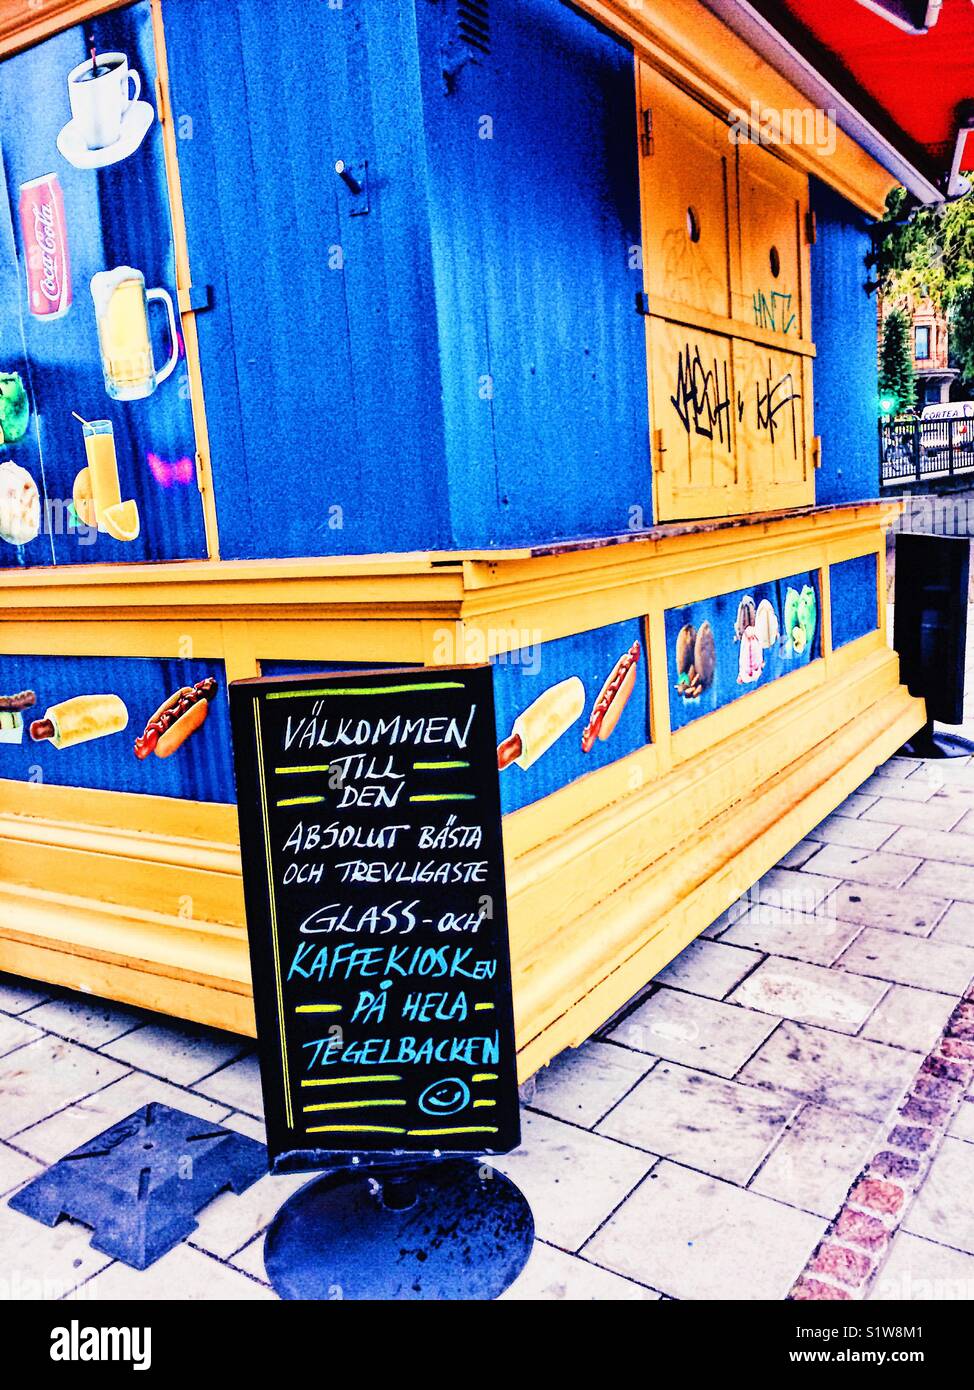 Coca-Cola
HNZ
CORTEA
VÄLKOMMEN
TILL
DEN
ABSOLUT BÄSTA
OCH TREVLIGASTE
GLASS-OCH
KAFFEKIOSKEN
PÅ HELA
TEGELBACKEN
alamy
Image ID: S1W8M1
www.alamy.com